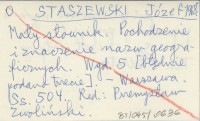 O STASZEWSKI Józef
Mały słownik. Pochodzenie
i znaczenie nazw geogra-
ficznych. Wyd. 5 [błędnie
podano trzecie]. – Warszawa.
Ss. 504. Red: Przemysław
Zwoliński.